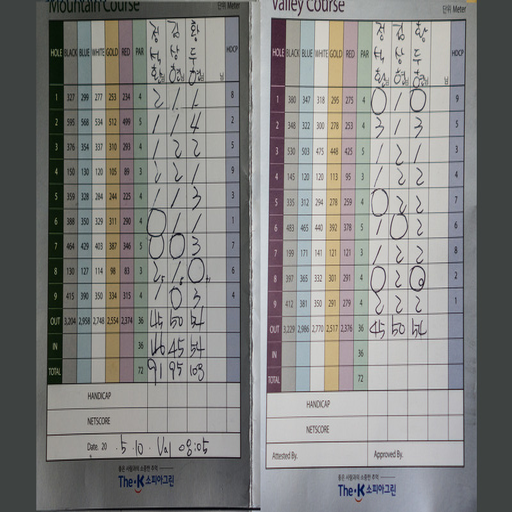 Mountain Course
단위 Meter
HOLE BLACK BLUE WHITE GOLD RED PAR HDCP
1 327 299 277 253 234 4 2 1 1 8
2 595 568 534 512 499 5 1 1 4 2
3 376 354 337 310 293 4 1 2 2 5
4 150 130 120 105 89 3 2 1 9
5 359 328 284 244 225 4 1 1 3 3
6 388 350 329 311 290 4 0 1 1 1
7 464 429 403 387 346 5 0 0 3 7
8 130 127 114 98 83 3 0 6
9 415 390 350 334 315 4 1 0 3 4
OUT 3,204 2,958 2,748 2,554 2,374 36 45 50 51
IN 36 45 51
TOTAL 72 91 95 103
HANDICAP
NETSCORE
Date. 20 . 5 . 10 . Val 08:05
좋은 사람과의 소중한 추억
The·K 소피아그린
Valley Course
단위 Meter
HOLE BLACK BLUE WHITE GOLD RED PAR HDCP
1 380 347 318 295 275 4 0 1 0 9
2 348 322 300 278 253 4 3 1 3 5
3 530 503 475 448 425 5 1 2 1 3
4 145 120 120 113 95 3 1 2 2 4
5 335 312 294 278 259 4 0 2 2 7
6 483 465 440 392 378 5 1 0 2 6
7 199 171 141 121 121 3 1 2 2 8
8 397 365 332 301 291 4 0 2 0 2
9 412 381 350 291 279 4 2 2 2 1
OUT 3,229 2,986 2,770 2,517 2,376 36 45 50 52
IN 36
TOTAL 72
HANDICAP
NETSCORE
Attested By. Approved By.
좋은 사람과의 소중한 추억
The·K 소피아그린